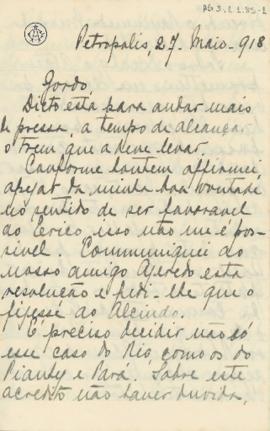 AG 3.2.1.85-1
Petropolis, 27. Maio. 918
Gordo
Dicto está para andar mais
de pressa, a tempo de alcançar
o trem que a deve levar.
Conforme hontem affirmei,
apezar da minha boa vontade
no sentido de ser favoravel
ao Erico, isso não me é pos-
sivel. Communiquei ao
nosso amigo Azeredo esta
resolução e pedi-lhe que o
fizesse ao Alcindo.
É preciso decidir não só
esse caso do Rio, como os do
Piauhy e Pará. Sobre este
acredito não haver duvida,